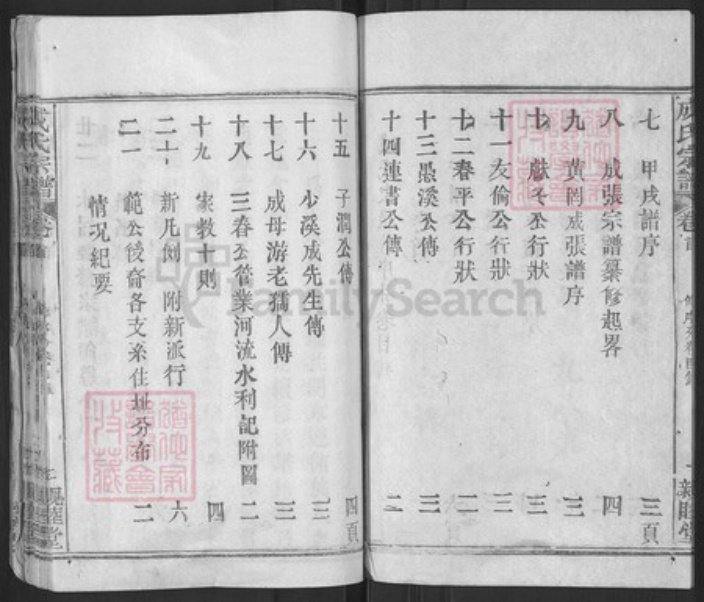 成氏宗譜 卷首
七 甲戌譜序 三頁
八 成張宗譜纂修起畧 四
九 黃岡成張譜序 三
十 獻冬公行狀 三
十一 友倫公行狀 三
十二 春平公行狀 二
十三 愚溪公傳 三
十四 連書公傳 二
十五 子潤公傳 四頁
十六 少溪成先生傳 三
十七 成母游老孺人傳 三
十八 三春公管業河流水利記附圖 二
十九 家教十則 四
二十 新凡例 附新派行 六
二一 範公後裔各支系住址分布 二
情况紀要
成氏宗譜
FamilySearch